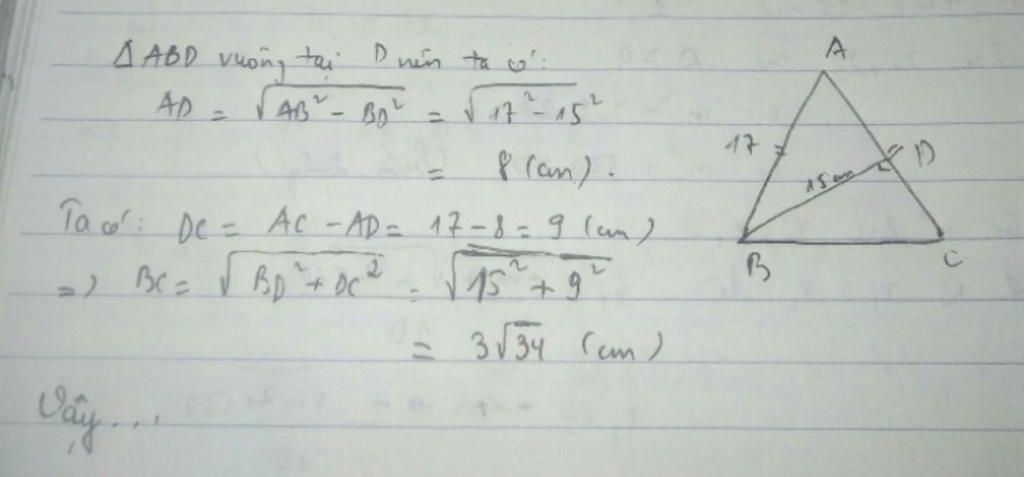 Δ ABD vuông tại D nên ta có:
AD = √(AB² - BD²) = √(17² - 15²)
= 8 (cm).
Ta có: DC = AC - AD = 17 - 8 = 9 (cm)
=> BC = √(BD² + DC²) = √(15² + 9²)
= 3√34 (cm)
Vậy...
A
17
15cm
D
B
C